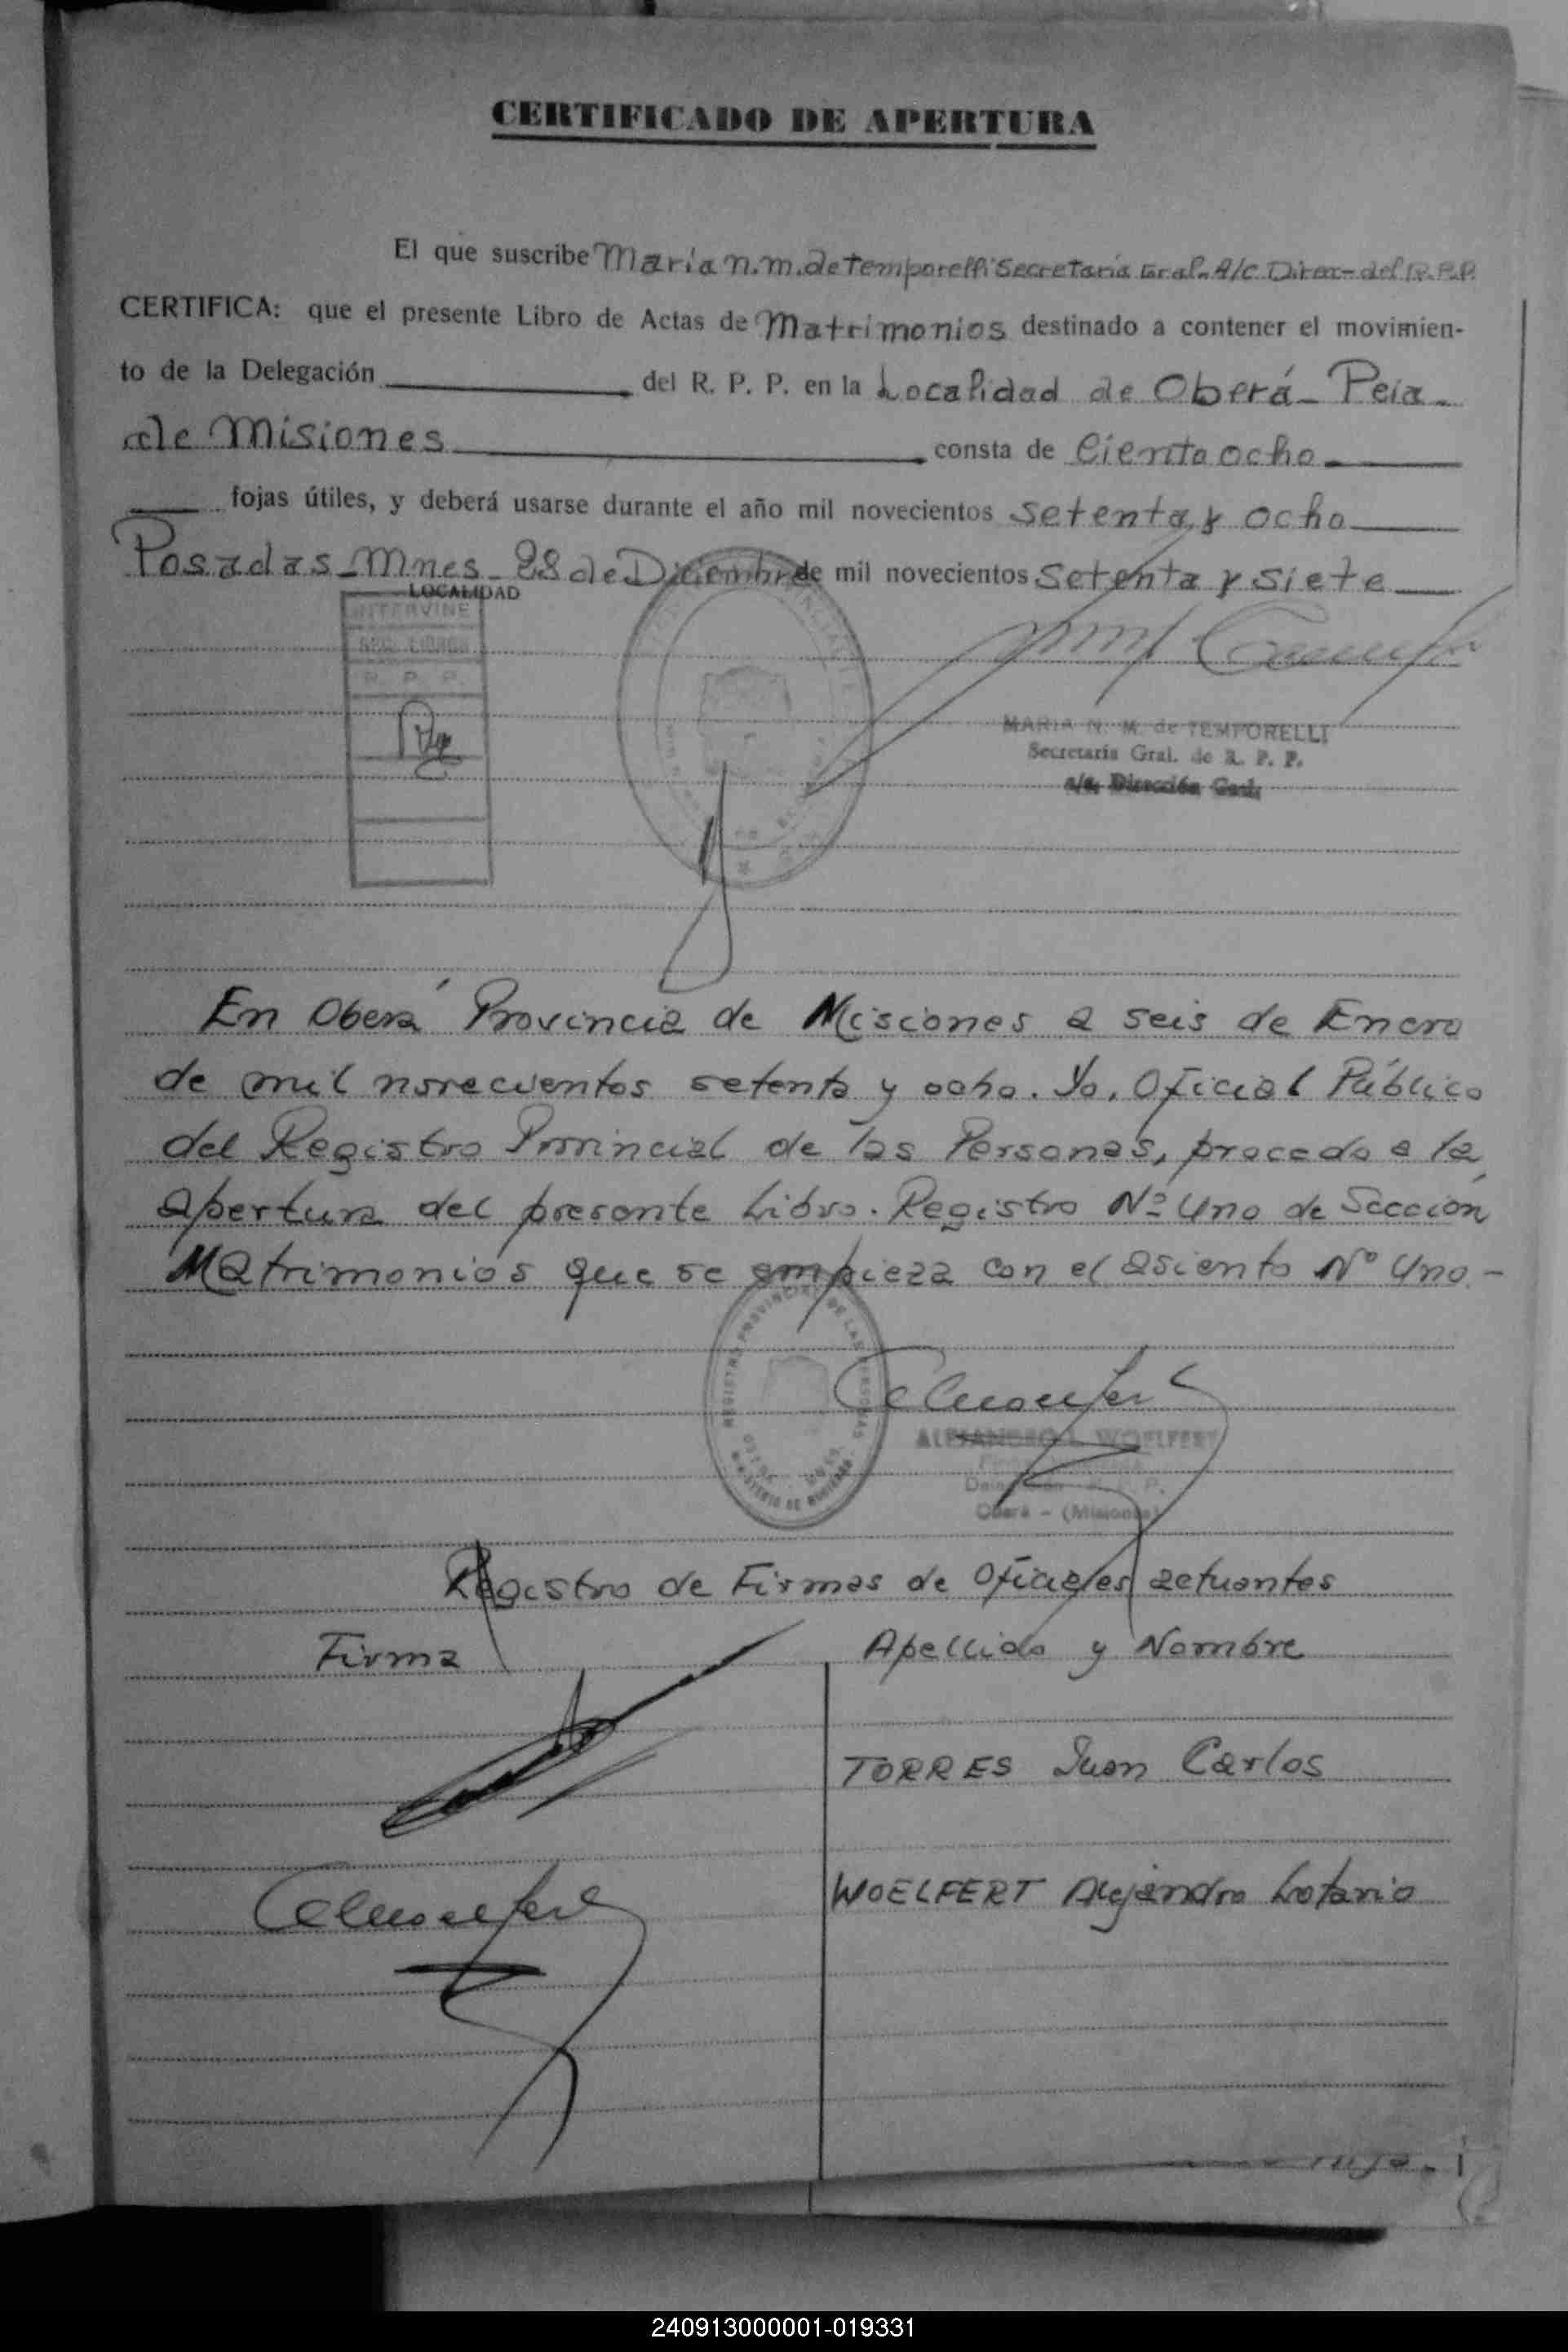 CERTIFICADO DE APERTURA
El que suscribe Maria n.m. de temporelli Secretaria Gral. A/C Direc- del R.P.P.
CERTIFICA: que el presente Libro de Actas de Matrimonios destinado a contener el movimien-
to de la Delegación del R. P. P. en la Localidad de Oberá - Pcia.
de Misiones consta de Ciento ocho
fojas útiles, y deberá usarse durante el año mil novecientos setenta y ocho
Posadas - Mnes - 28 de Diciembre de mil novecientos setenta y siete
LOCALIDAD
INTERVINE
SEC. LIBROS
R. P. P.
MARIA N. M. de TEMPORELLI
Secretaria Gral. de R. P. P.
a/c. Dirección Gral.
En Oberá Provincia de Misiones a seis de Enero
de mil novecientos setenta y ocho. Yo, Oficial Público
del Registro Provincial de las Personas, procedo a la
apertura del presente Libro. Registro Nº Uno de Sección
Matrimonios que se empieza con el asiento Nº Uno.-
REGISTRO PROVINCIAL DE LAS PERSONAS
MINISTERIO DE GOBIERNO
ALEJANDRO L. WOELFERT
Oberá - (Misiones)
Registro de Firmas de Oficiales actuantes
Firma Apellido y Nombre
TORRES Juan Carlos
WOELFERT Alejandro Lotario
240913000001-019331